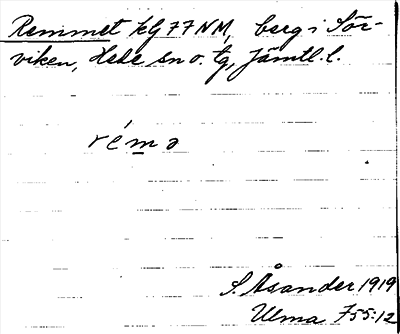 Remmet kG 77 NM, berg i Sör-
viken, Hede sn o. tg, Jämtl. l.
rémə
S. Åsander 1919
Ulma 755:12